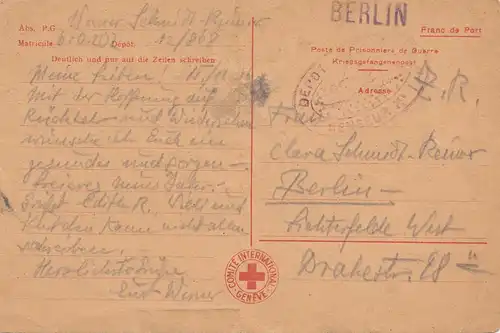 BERLIN
Abs. P.G. Werner Schmidt-Reuver
Matricule 610.207 Dépôt 12/868
Deutlich und nur auf die Zeilen schreiben
Meine Lieben!
Mit der Hoffnung auf
und Wiedersehen
wünsche ich Euch ein
gesundes und sorgen-
freieres neues Jahr.
Grüßt Edith R.
kann nicht allen
schreiben.
Herzlichst
Euer Werner
COMITÉ INTERNATIONAL
GENÈVE
Franc de Port
Poste de Prisonniers de Guerre
Kriegsgefangenenpost
DEPOT
Adresse
Frau
Clara Schmidt-Reuver
Berlin-
Lichterfelde West
Drakestr. 28